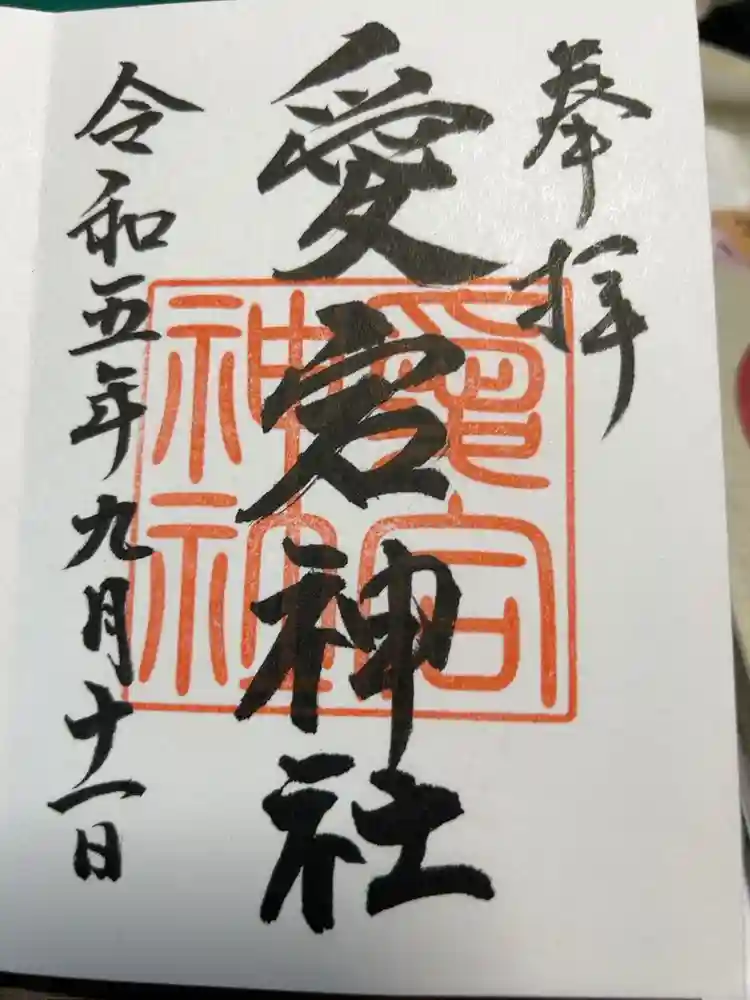 奉拝
愛宕神社
愛宕神社
令和五年九月十一日